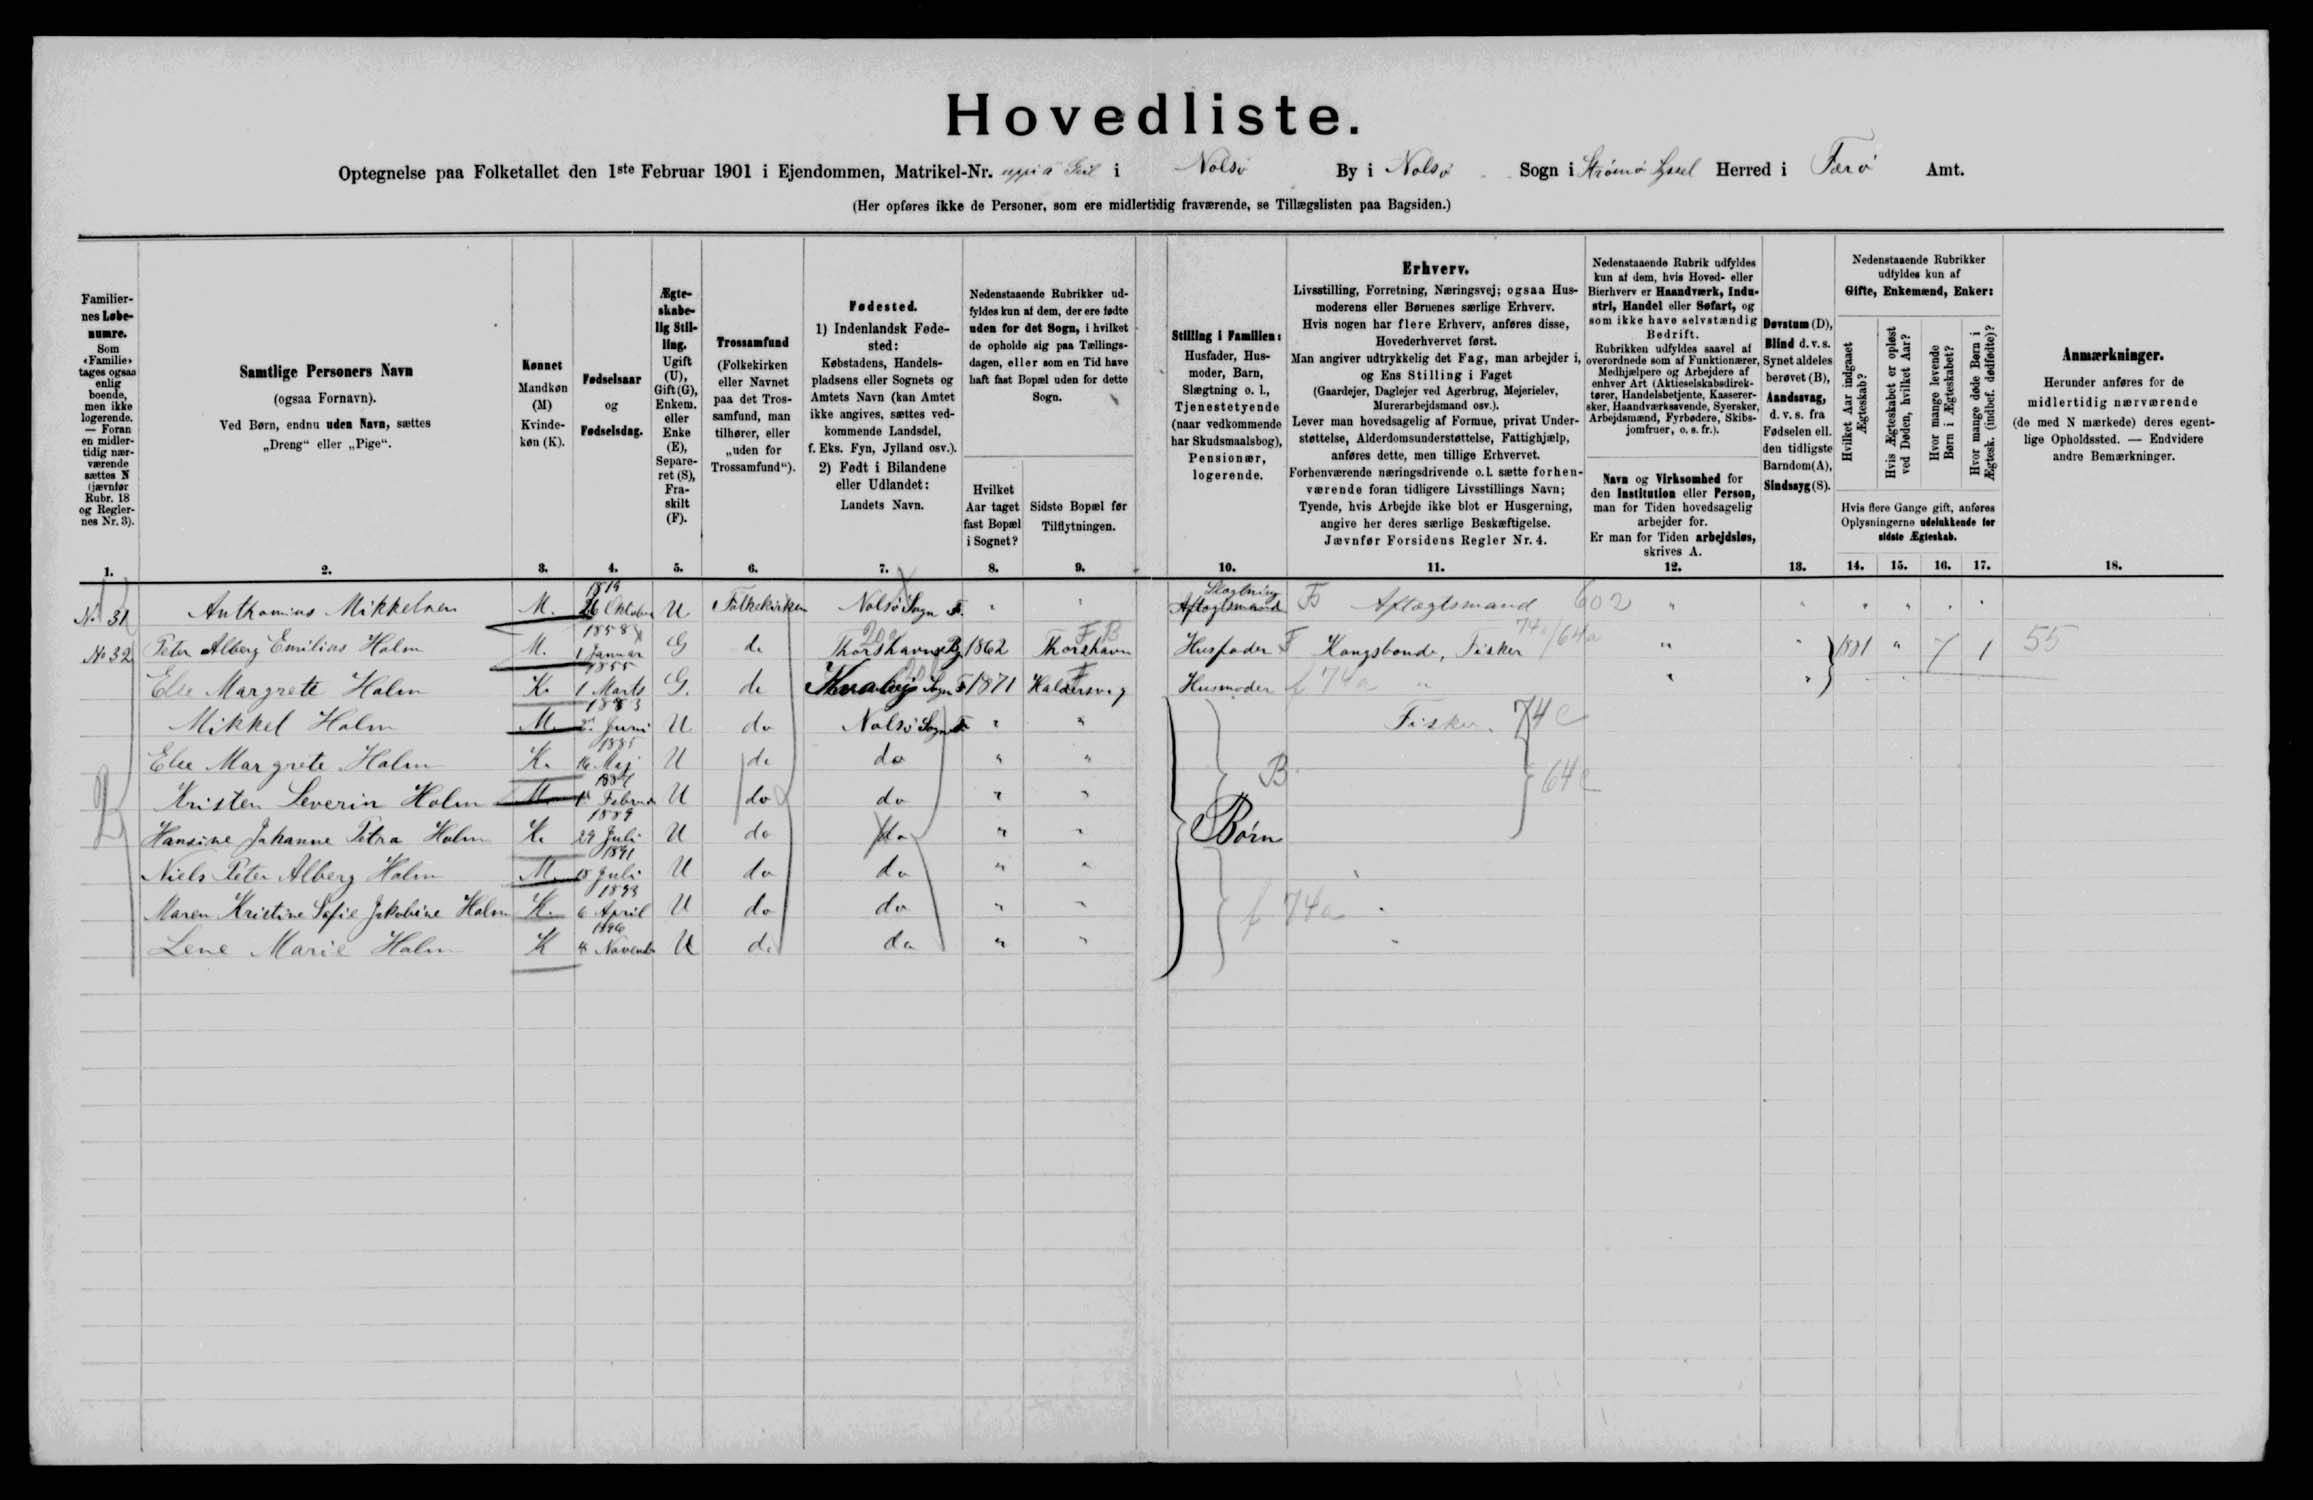 Hovedliste.
Optegnelse paa Folketallet den 1ste Februar 1901 i Ejendommen, Matrikel-Nr. i Nolsø By i Nolsø Sogn i Strømø Syssel Herred i Færø Amt.
(Her opføres ikke de Personer, som ere midlertidig fraværende, se Tillægslisten paa Bagsiden.)
Familier-
nes Løbe-
numre.
Som
«Familie»
tages ogsaa
enlig
boende,
men ikke
logerende.
— Foran
en midler-
tidig nær-
værende
sættes N
(jævnfør
Rubr. 18
og Regler-
nes Nr. 3).
Samtlige Personers Navn
(ogsaa Fornavn).
Ved Børn, endnu uden Navn, sættes
„Dreng“ eller „Pige“.
Kønnet
Mandkøn
(M)
Kvinde-
køn (K).
Fødselsaar
og
Fødselsdag.
Ægte-
skabe-
lig Stil-
ling.
Ugift
(U),
Gift (G),
Enkem.
eller
Enke
(E),
Separe-
ret (S),
Fra-
skilt
(F).
Trossamfund
(Folkekirken
eller Navnet
paa det Tros-
samfund, man
tilhører, eller
„uden for
Trossamfund“).
Fødested.
1) Indenlandsk Føde-
sted:
Købstadens, Handels-
pladsens eller Sognets og
Amtets Navn (kan Amtet
ikke angives, sættes ved-
kommende Landsdel,
f. Eks. Fyn, Jylland osv.).
2) Født i Bilandene
eller Udlandet:
Landets Navn.
Nedenstaaende Rubrikker ud-
fyldes kun af dem, der ere fødte
uden for det Sogn, i hvilket
de opholde sig paa Tællings-
dagen, eller som en Tid have
haft fast Bopæl uden for dette
Sogn.
Hvilket
Aar taget
fast Bopæl
i Sognet?
Sidste Bopæl før
Tilflytningen.
Stilling i Familien:
Husfader, Hus-
moder, Barn,
Slægtning o. l.,
Tjenestetyende
(naar vedkommende
har Skudsmaalsbog),
Pensionær,
logerende.
Erhverv.
Livsstilling, Forretning, Næringsvej; ogsaa Hus-
moderens eller Børnenes særlige Erhverv.
Hvis nogen har flere Erhverv, anføres disse,
Hovederhvervet først.
Man angiver udtrykkelig det Fag, man arbejder i,
og Ens Stilling i Faget
(Gaardejer, Daglejer ved Agerbrug, Mejerielev,
Murerarbejdsmand osv.).
Lever man hovedsagelig af Formue, privat Under-
støttelse, Alderdomsunderstøttelse, Fattighjælp,
anføres dette, men tillige Erhvervet.
Forhenværende næringsdrivende o. l. sætte forhen-
værende foran tidligere Livsstillings Navn;
Tyende, hvis Arbejde ikke blot er Husgerning,
angive her deres særlige Beskæftigelse.
Jævnfør Forsidens Regler Nr. 4.
Nedenstaaende Rubrik udfyldes
kun af dem, hvis Hoved- eller
Bierhverv er Haandværk, Indu-
stri, Handel eller Søfart, og
som ikke have selvstændig
Bedrift.
Rubrikken udfyldes saavel af
overordnede som af Funktionærer,
Medhjælpere og Arbejdere af
enhver Art (Aktieselskabsdirek-
tører, Handelsbetjente, Kasserer-
sker, Haandværkssvende, Syersker,
Arbejdsmænd, Fyrbødere, Skibs-
jomfruer, o. s. fr.).
Navn og Virksomhed for
den Institution eller Person,
man for Tiden hovedsagelig
arbejder for.
Er man for Tiden arbejdsløs,
skrives A.
Døvstum (D),
Blind d. v. s.
Synet aldeles
berøvet (B),
Aandssvag,
d. v. s. fra
Fødselen ell.
den tidligste
Barndom (A),
Sindssyg (S).
Nedenstaaende Rubrikker
udfyldes kun af
Gifte, Enkemænd, Enker:
Hvilket Aar indgaaet
Ægteskab?
Hvis Ægteskabet er opløst
ved Døden, hvilket Aar?
Hvor mange levende
Børn i Ægteskabet?
Hvor mange døde Børn i
Ægtesk. (indbef. dødfødte)?
Hvis flere Gange gift, anføres
Oplysningerne udelukkende for
sidste Ægteskab.
Anmærkninger.
Herunder anføres for de
midlertidig nærværende
(de med N mærkede) deres egent-
lige Opholdssted. — Endvidere
andre Bemærkninger.
1. 2. 3. 4. 5. 6. 7. 8. 9. 10. 11. 12. 13. 14. 15. 16. 17. 18.
No 31 Anthonius Mikkelsen M. 1819 26 Oktober U Folkekirken Nolsø Sogn F. " " Slægtning Aftægtsmand F Aftægtsmand 602 " " " " " "
No 32 Peter Alberg Emilius Holm M. 1858 1 Januar G do Thorshavn 1862 Thorshavn Husfader F Kongsbonde, Fisker 74a/64a " " 1881 " 7 1 55
Else Margrete Holm K. 1855 1 Marts G. do Sogn F 1871 Haldersvig Husmoder f 74a " " "
Mikkel Holm M. 1883 Juni U do Nolsø Sogn F " " Fisker. 74c
Else Margrete Holm K. 1885 16 Maj U do do " " B 64c
Kristen Severin Holm M. Februar U do do " "
Hansine Johanne Petra Holm K. 1889 29 Juli U do do " " Børn
Niels Peter Alberg Holm M. 1891 18 Juli U do do " "
Maren Kristine Sofie Jakobine Holm K. 1893 6 April U do do " " f 74a "
Lene Marie Holm K 1896 November U do do " " "